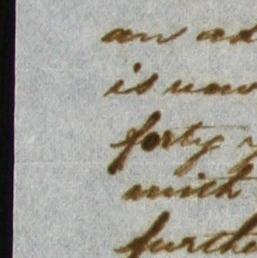 an ad
is unw
forty y
with
furthe